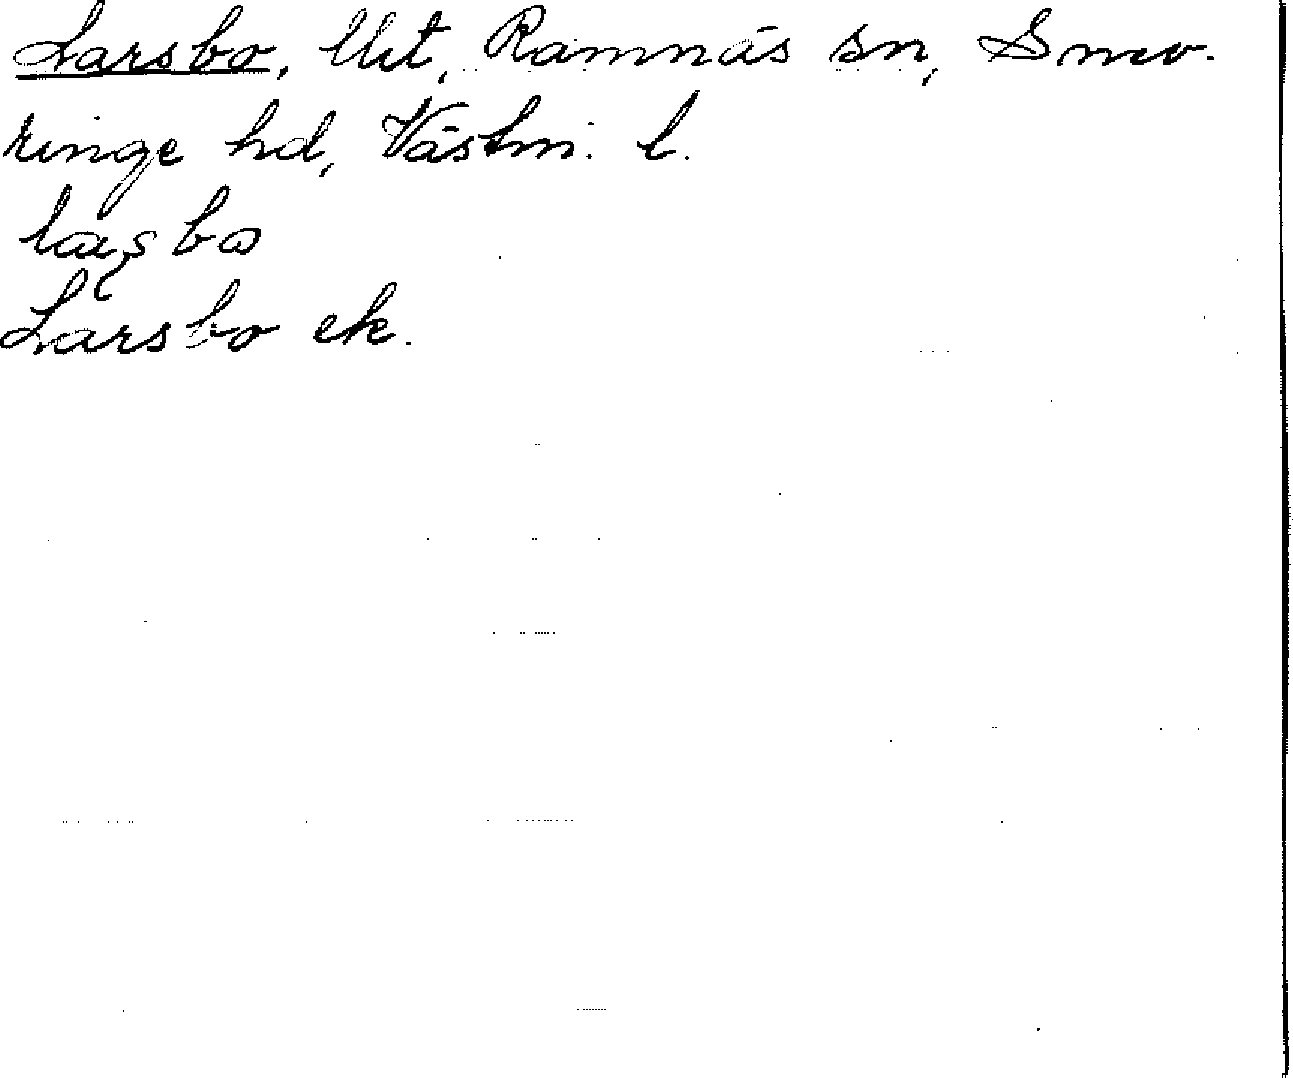 Larsbo, lht, Ramnäs sn, Snev-
ringe hd, Västm. l.
laʂbɷ
Larsbo ek.